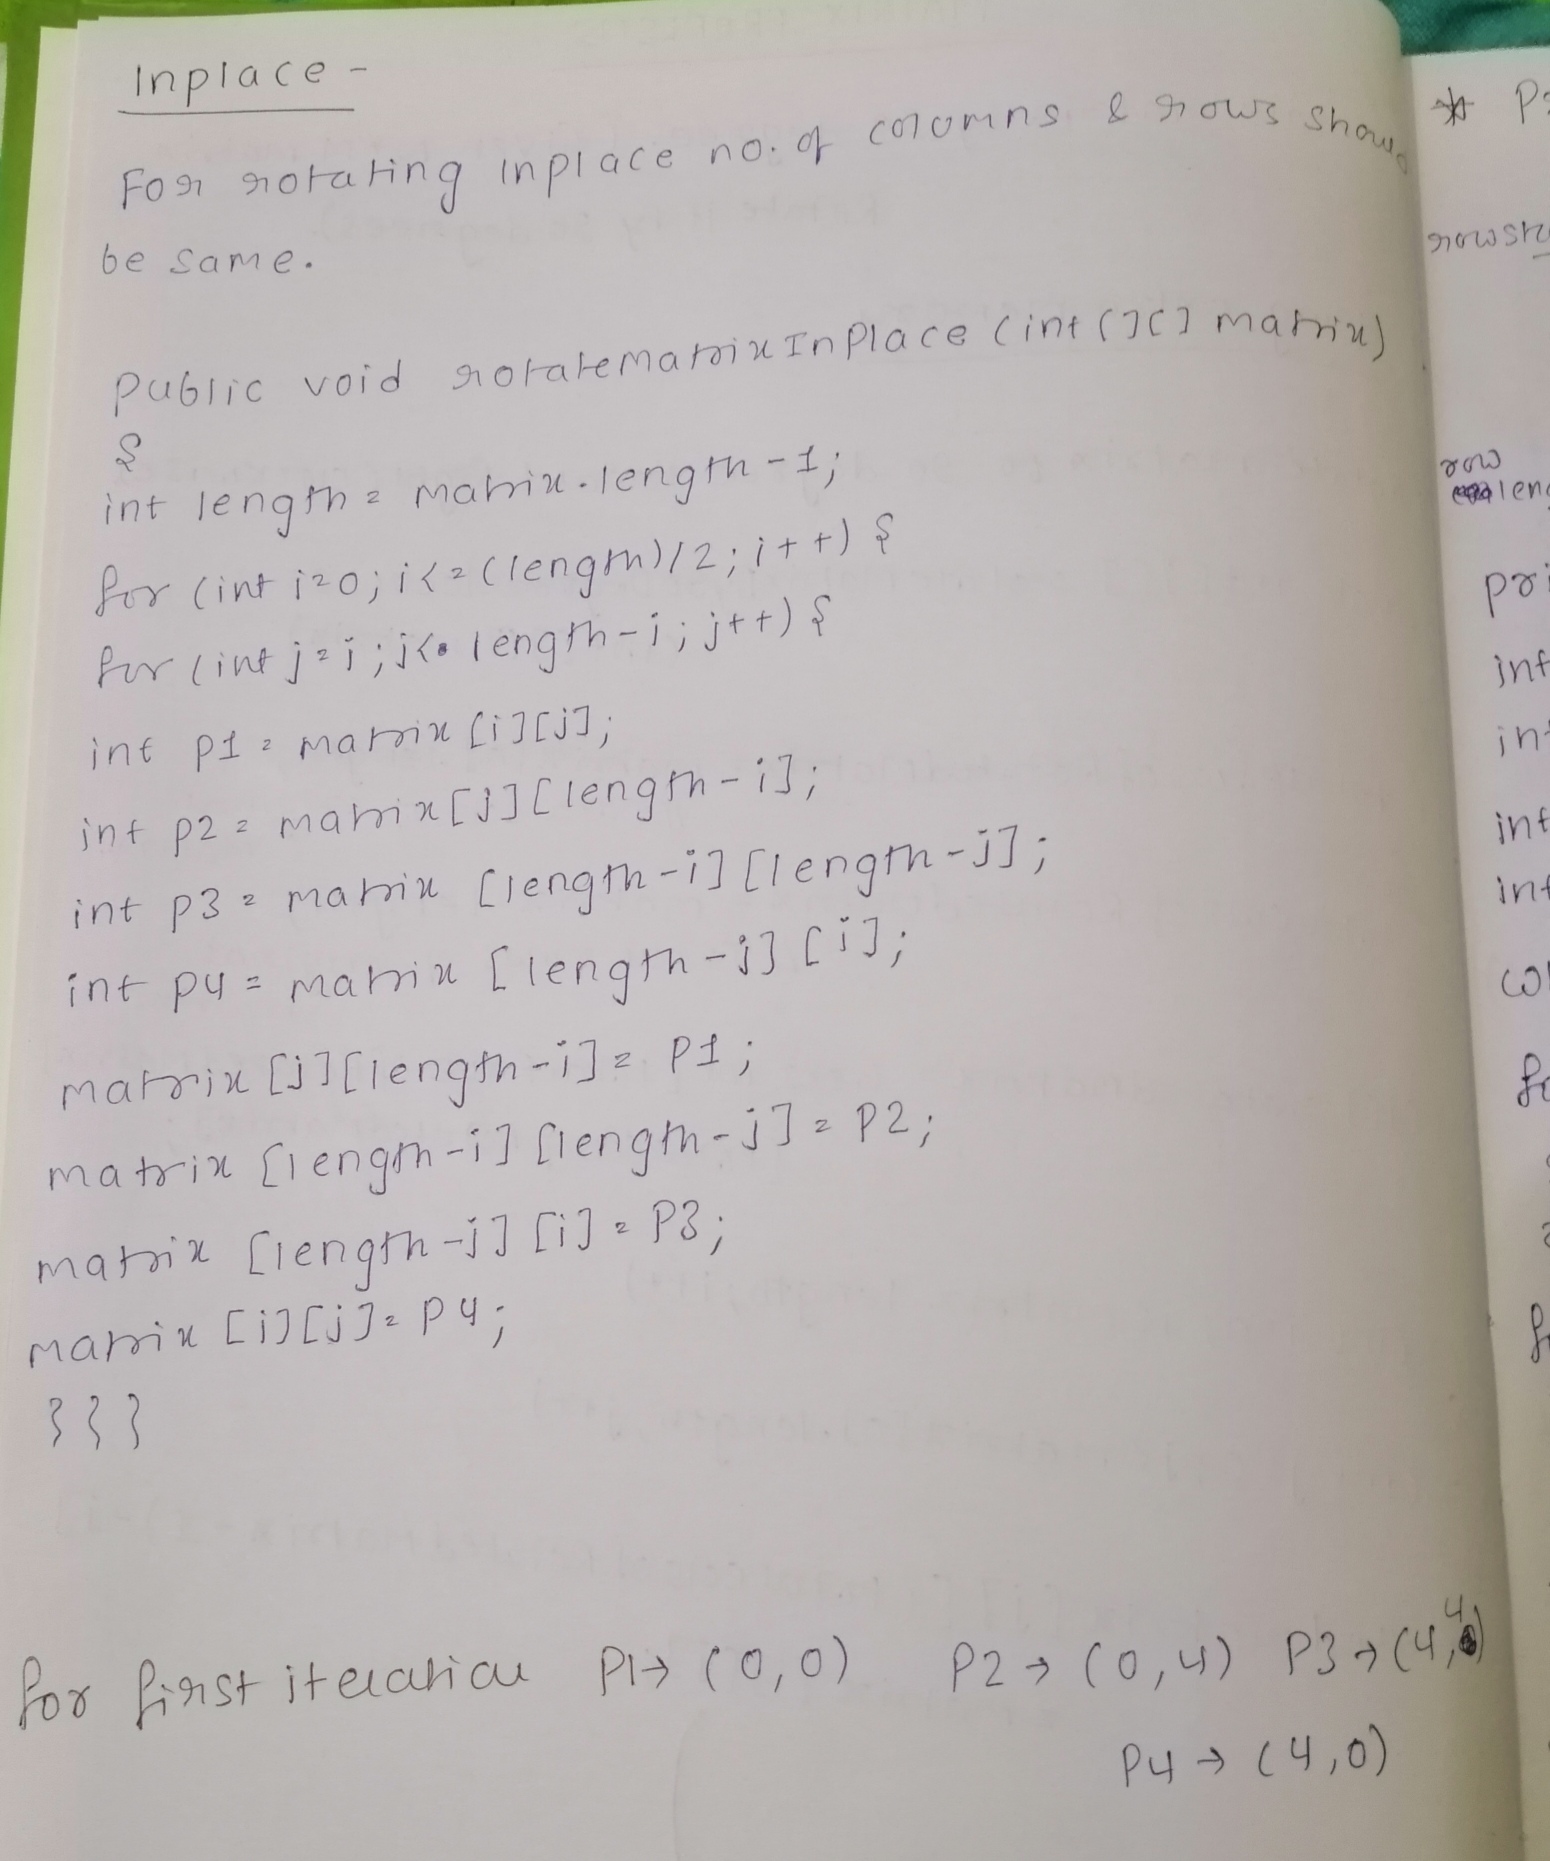 Inplace -
For rotating inplace no. of columns & rows should
be same.
Public void rotatematrixInPlace (int [][] matrix)
{
int length = matrix.length-1;
for (int i=0; i<=(length)/2; i++) {
for (int j=i; j< length-i; j++) {
int p1 = matrix [i][j];
int p2 = matrix[j][length-i];
int p3 = matrix [length-i][length-j];
int p4 = matrix [length-j][i];
matrix [j][length-i] = P1;
matrix [length-i] [length-j] = P2;
matrix [length-j] [i] = P3;
matrix [i][j] = P4;
}}}
for first iteration P1→ (0,0) P2→ (0,4) P3→(4,4)
P4→ (4,0)
* P
row
int
int
int
int